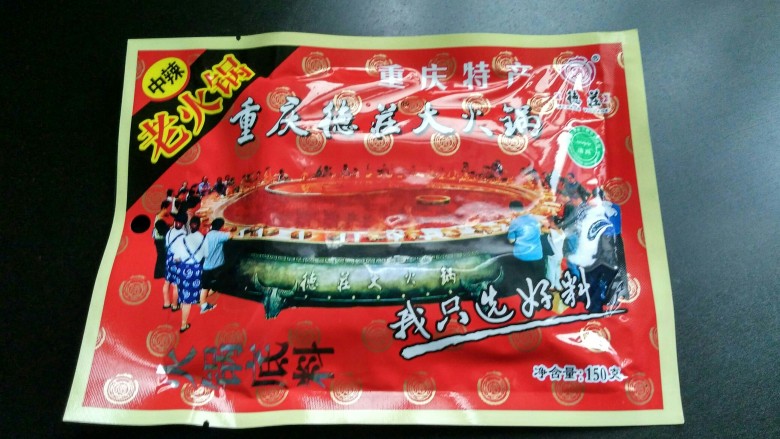 中辣
老火锅
重庆特产
德莊
®
重庆德莊大火鍋
德莊大火鍋
我只选好料
火锅底料
净含量:150克